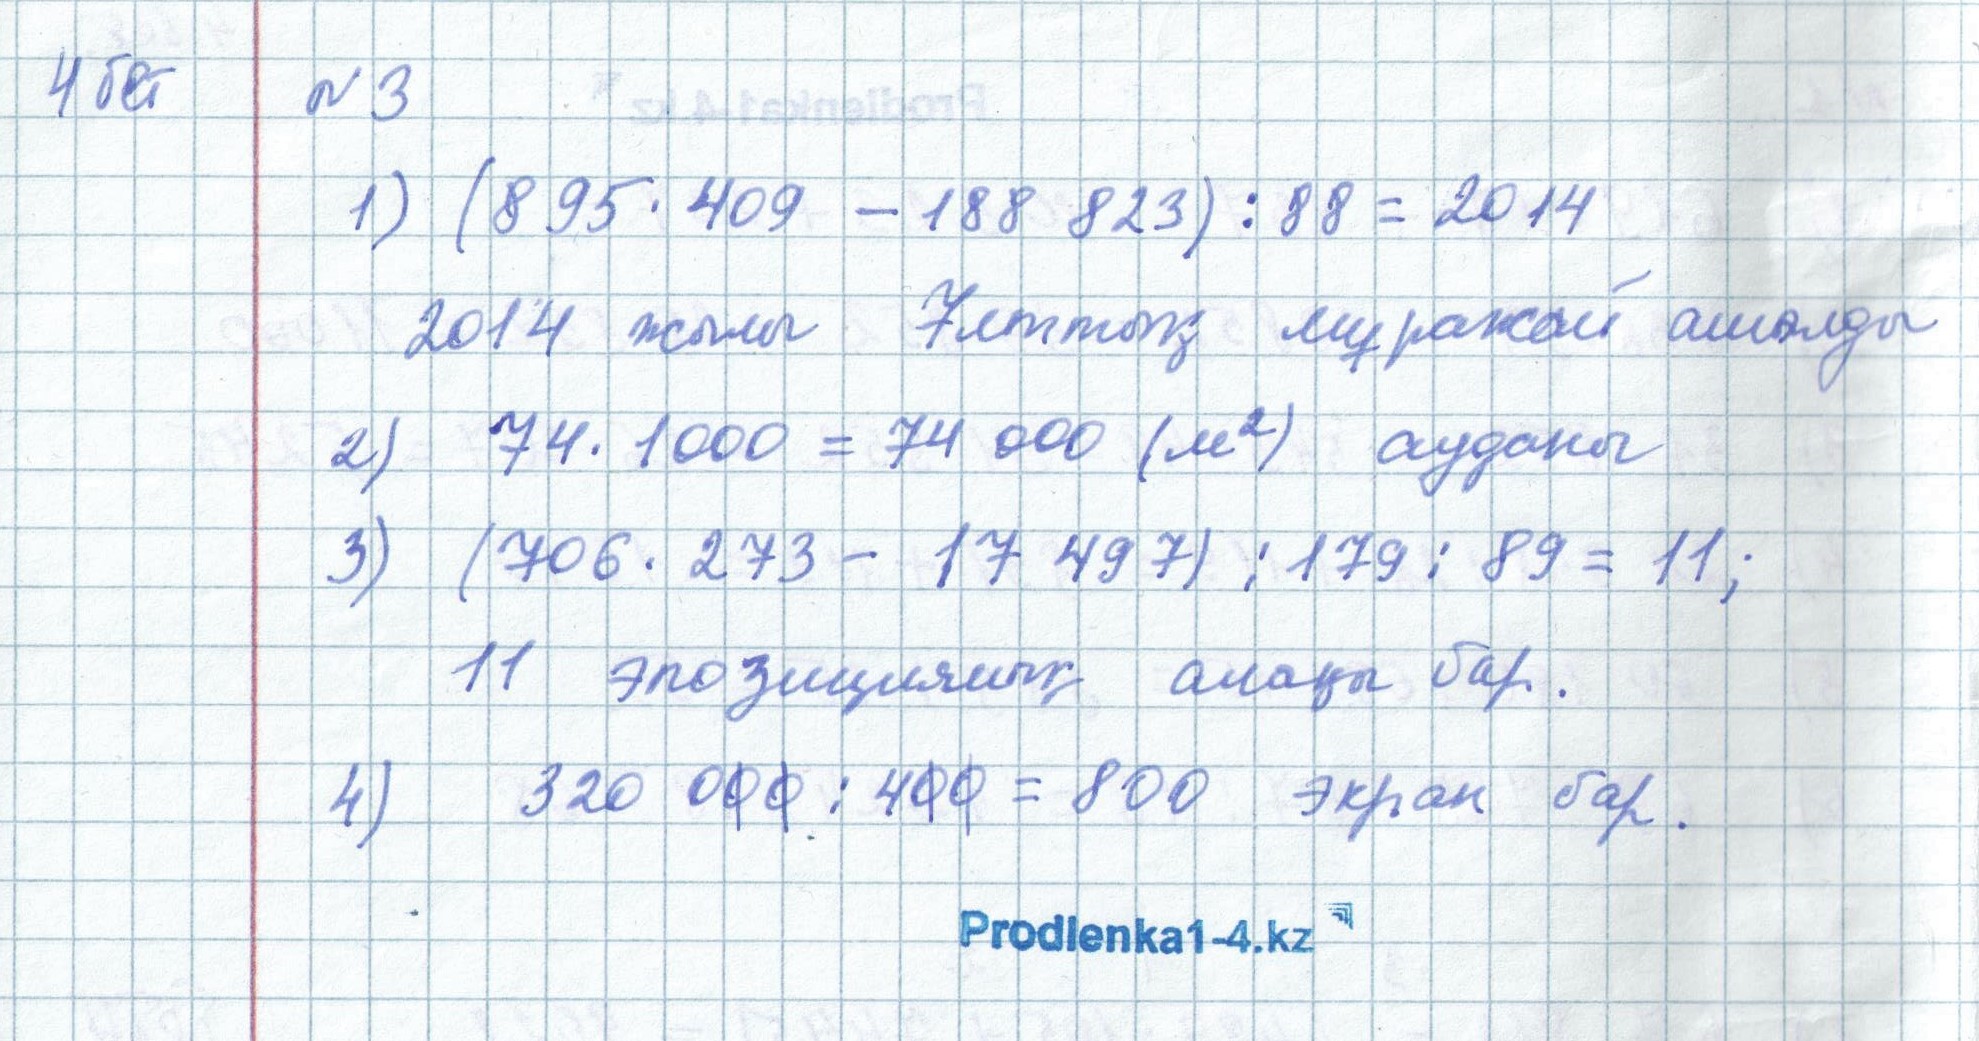 4 бет №3
1) (895 · 409 – 188 823) : 88 = 2014
2014 жылы Ұлттық мұражай ашылды
2) 74 · 1000 = 74 000 (м²) ауданы
3) (706 · 273 – 17 497) : 179 : 89 = 11;
11 эпозициялық алаңы бар.
4) 320 000 : 400 = 800 экран бар.
Prodlenka1-4.kz